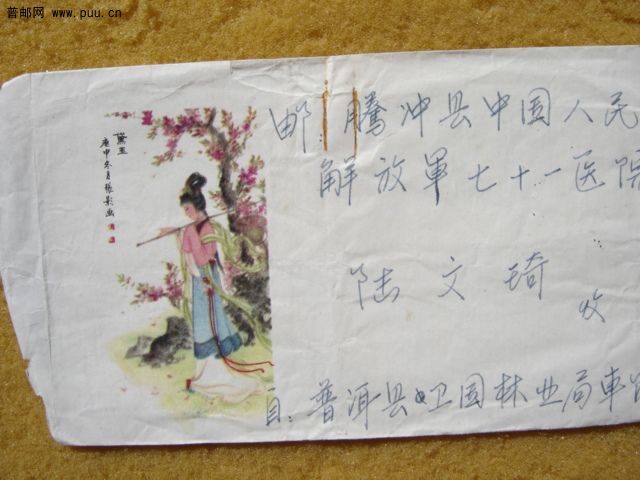 普邮网 www.puu.cn
黛玉
庚申冬月張彭画
邮：腾冲县中国人民
解放軍七十一医院
陆文琦
收
自：普洱县卫国林业局車